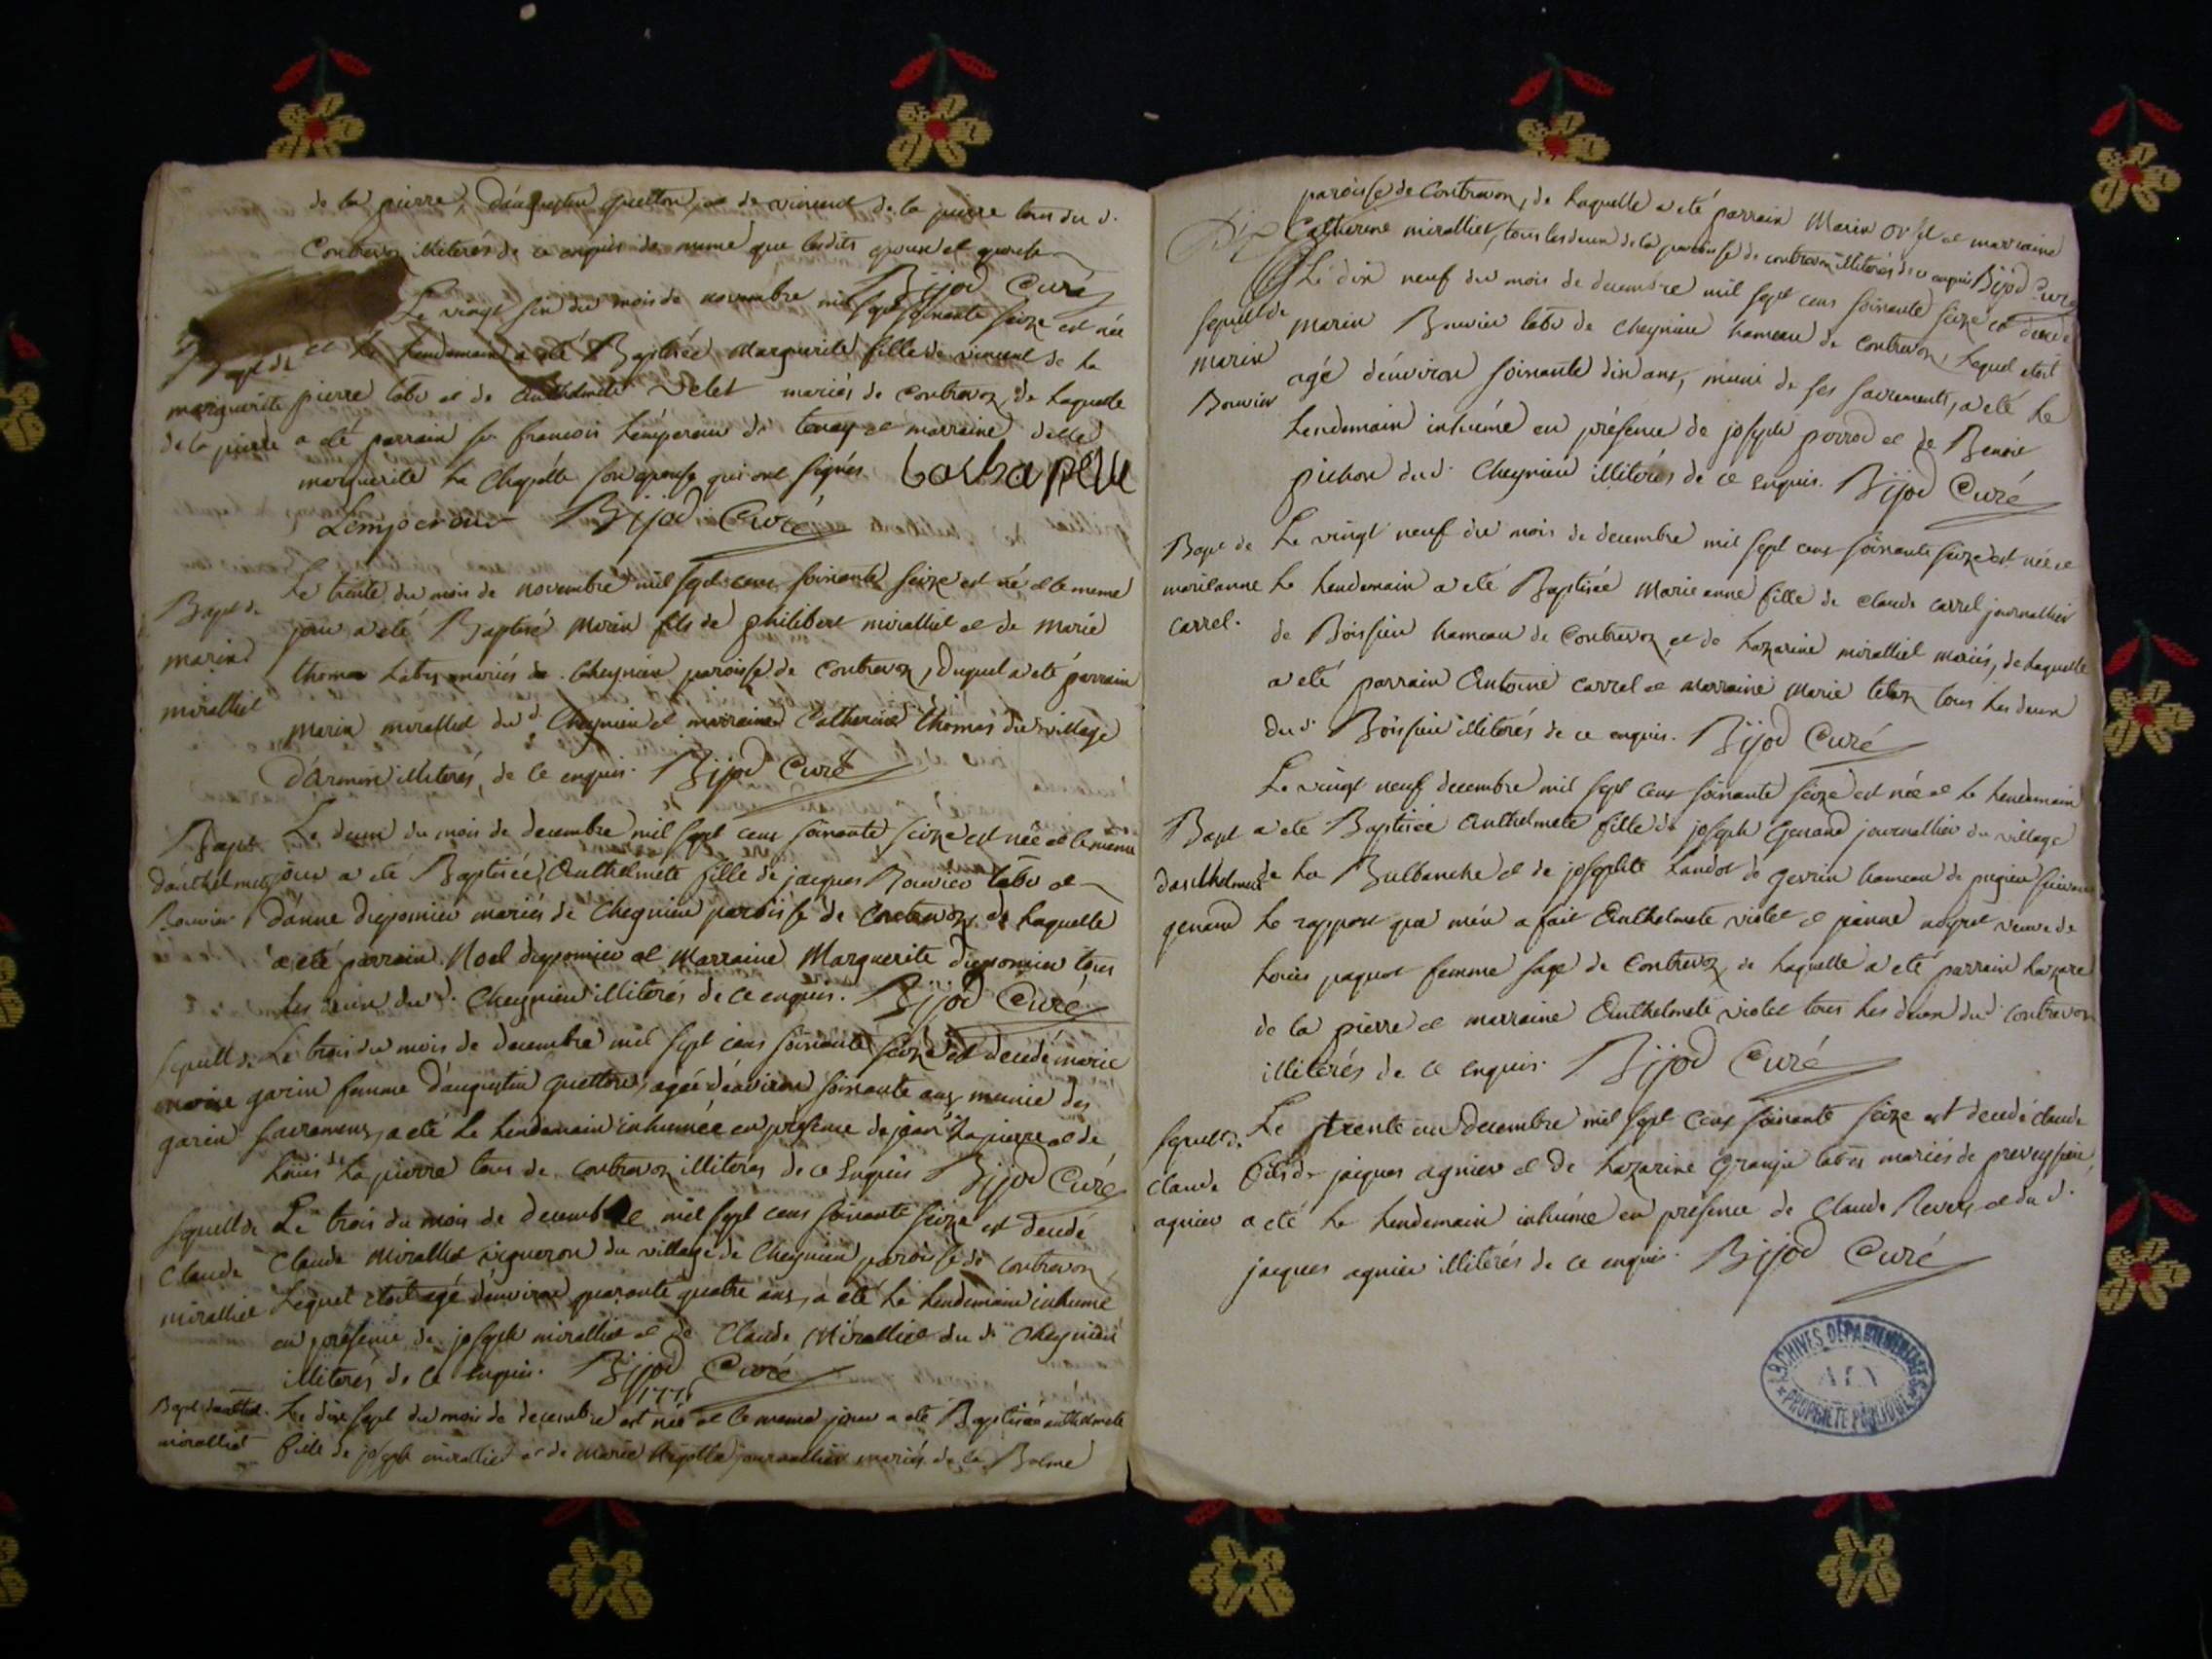 de la pierre, d'augustin guetton, et de vincent de la pierre tous du d.
Contrevoz illiterés de ce enquis de meme que lesdits epoux et epouse
Bijod Curé
Le vingt six du mois de novembre mil sept soixante seize est née
Bapt de
marguerite
de la pierre
et le lendemain a eté Baptisée Marguerite fille de vincent de la
pierre labr et de Anthelmete velet mariés de Contrevoz, de laquelle
a eté parrain sr francois Lempereur de tenay et marraine delle
marguerite La Chapelle son epouse qui ont signés Lachapelle
Lempereur Bijod Curé
Bapt de
marin
miralliet
Le trente du mois de novembre mil sept cens soixante seize est né et le meme
jour a eté Baptisé Marin fils de philibert miralliet et de Marie
thomas labrs mariés de Cheynieu paroisse de Contrevoz, duquel a eté parrain
Marin miralliet du d. Cheynieu et marraine Catherine thomas du village
d'armix illiterés, de ce enquis. Bijod Curé
Bapt
d'anthelmete
Bouvier
Le deux du mois de decembre mil sept cens soixante seize est née et le meme
jour a eté Baptisée Anthelmete fille de jacques Bouvier labr et
d'anne dupomier mariés de Cheynieu paroisse de Contrevoz de laquelle
a eté parrain Noel dupomier et Marraine Marguerite dupomier tous
les deux du d. Cheynieu illiterés de ce enquis. Bijod Curé
sepult de
marie
garin
Le trois du mois de decembre mil sept cens soixante seize est decedé marie
garin femme d'augustin guetton, agée d'environ soixante ans munie des
sacremens, a eté le lendemain inhumée en presence de jean la pierre et de
loüis de la pierre tous de contrevoz illiterés de ce Enquis Bijod Curé
sepult de
Claude
miralliet
Le trois du mois de decembre mil sept cens soixante seize est decedé
Claude Miralliet vigneron du village de Cheynieu paroisse de contrevoz,
Lequel etoit agé d'environ quarante quatre ans, a eté le lendemain inhumé
en presence de joseph miralliet et de Claude Miralliet du d. Cheynieu
illiterés de ce enquis. Bijod Curé
1776
Bapt danthel.
miralliet
Le dix sept du mois de decembre est née et le meme jour a eté Baptisée anthelmete
fille de joseph miralliet et de Marie journallier mariés de la Balme
paroisse de Contrevoz, de laquelle a eté parrain Marin orsel et marraine
Catherine miralliet, tous les deux de la paroisse de contrevoz illiterés de ce enquis Bijod Curé
sepult de
marin
Bouvier
Le dix neuf du mois de decembre mil sept cens soixante seize est decedé
marin Bouvier labr de Cheynieu hameau de Contrevoz, Lequel etoit
agé d'environ soixante dix ans, muni de ses sacrements, a eté le
lendemain inhumé en présence de joseph perrod et de Benoit
pichon du d. Cheynieu illiterés de ce enquis. Bijod Curé
Bapt de
marieanne
carrel.
Le vingt neuf du mois de decembre mil sept cens soixante seize est née et
le lendemain a eté Baptisée Marie anne fille de Claude Carrel journallier
de Boissieu hameau de Contrevoz et de Lazarine miralliet mariés, de laquelle
a eté parrain Antoine Carrel et Marraine Marie tous les deux
du d. Boissieu illiterés de ce enquis. Bijod Curé
Bapt
danthelmete
genand
Le vingt neuf decembre mil sept cens soixante seize est née et le lendemain
a eté Baptisée Anthelmete fille de joseph Genand journallier du village
de la Bulbanche et de josephte Landot de gevrin hameau de pugieu suivant
le rapport que m'en a fait Anthelmete violet et jeanne veuve de
Louis paquet femme sage de Contrevoz, de laquelle a eté parrain Lazare
de la pierre et marraine Anthelmete violet tous les deux du d. contrevoz
illiterés de ce enquis. Bijod Curé
sepult de
Claude
agnier
Le trente un decembre mil sept cens soixante seize est decedé claude
fils de jacques agnier et de Lazarine Granju labrs mariés de preveyssieu,
a eté le lendemain inhumé en presence de Claude Revery et du d.
jacques agnier illiterés de ce enquis. Bijod Curé
ARCHIVES DÉPARTEMENTALES
AIN
PROPRIÉTÉ PUBLIQUE